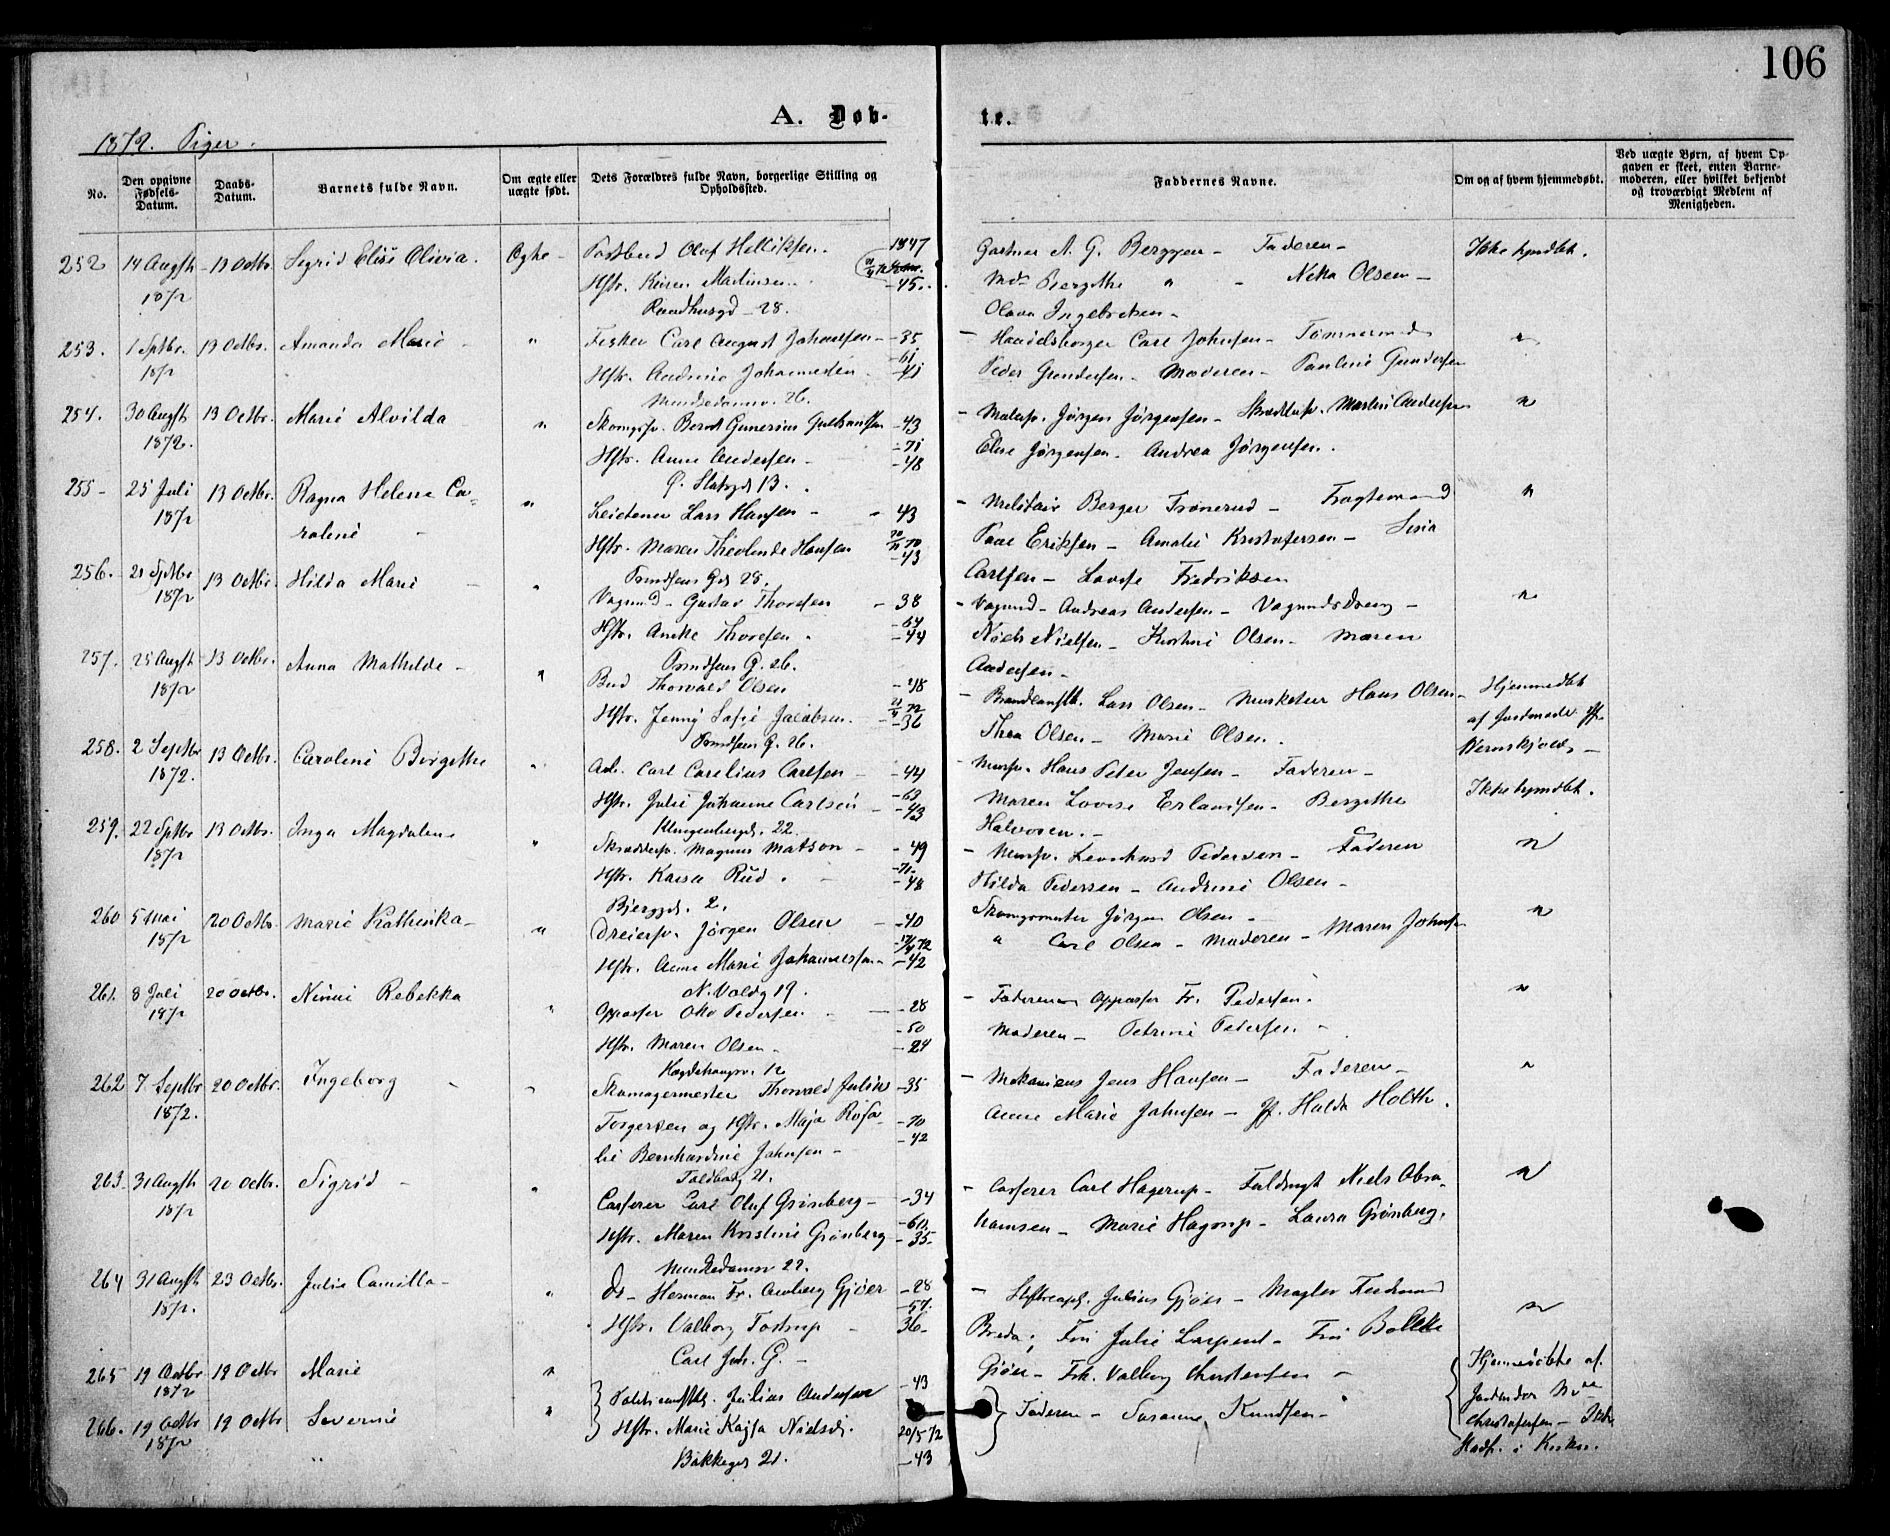 106
A. Døb-
te.
1872. Piger.
No.
Den opgivne Fødsels-Datum.
Daabs-Datum.
Barnets fulde Navn.
Om ægte eller uægte født.
Dets Forældres fulde Navn, borgerlige Stilling og Opholdssted.
Faddernes Navne.
Om og af hvem hjemmedøbt.
Ved uægte Børn, af hvem Opgaven er skeet, enten Barnemoderen, eller hvilket bekjendt og troværdigt Medlem af Menigheden.
252 14 Augst 13 Octbr. Sigrid Elise Olivia. Ægte Postbud Olof Helliksen. 1847 Gartner A. G. Berggren - Faderen - Ikke hjmdbt.
1872 Hstr. Karen Martinsen - 45. Md. Bergithe " - Neka Olsen -
Raadhusgd 28. Olava Ingebretsen -
253. 1 Sptbr. 13 Octbr. Amanda Marie " Fisker Carl August Johansen - 35 - Handelsborger Carl Johnsen - Tømmermand "
1872 Hstr. Andrine Johannesen - 61. - 41 Peder Gundersen - Moderen - Pauline Gundersen
Munkedamsv. 26.
254. 30 Augst 13 Octbr. Marie Alvilda " Skomgsv. Bernt Gunerius Gulbrandsen - 43 - Malersv. Jørgen Jørgensen - Skrædersv. Martin Andersen "
1872. Hstr. Anne Andersen - 71 - 48 Else Jørgensen. Andrea Jørgensen.
Ø. Slotsgd 13.
255 - 25 Juli 13 Octbr. Ragna Helene Ca- " Leietener Lars Hansen - 43 - Militair Berger Tronerud - Fragtemand "
1872 roline Hstr. Maren Theolinde Hansen 70 - 43 Paae Eriksen - Amalie Kristofersen - Lisia
Tomdsens Gd 28. Carlsen - Lovise Fredriksen
256. 21 Sptbr 13 Octbr. Hilda Marie " Vognmd - Gustav Thoresen - 38 - Vognmd - Andreas Andersen - Vogmndsdreng - "
1872 Hstr. Aneke Thoresen. - 64 - 44 Niels Nielsen - Kristine Olsen - Maren
Tomdsens G. 26. Andersen -
257. 25 Augst 13 Octbr. Anna Mathilde - " Bud Thorvald Olsen - 48 - Brandkonstb. Lars Olsen - Musketeer Hans Olsen - Hjemmedbt
1872 Hstr. Jenny Sofie Jacobsen. 72 - 36 Thea Olsen - Marie Olsen. af Jordmoder Jfr.
Tomdsens G. 26. Wernskjold -
258. 2 Septbr 13 Octbr. Caroline Birgithe " Arb. Carl Carelius Carlsen - 44 - Mursv. Hans Peter Jensen - Faderen - Ikke hjmdbt.
1872. Hstr. Julie Johanne Carlsen - 63 - 43 Maren Lovise Erlandsen - Bergithe
Klingenberggd. 22. Halvorsen. -
259. 22 Sptbr 13 Octbr. Inga Magdalene " Skrædersv. Magnus Matson - 49 - Mursv. Leonhard Pedersen - Faderen "
1872 Hstr. Kaisa Rud. - 71. - 48 Hilda Pedersen - Andrine Olsen -
Bjerggd. 2.
260 5 Mai 20 Octbr. Marie Kathinka - " Dreiersv. Jørgen Olsen - 40 Skomgrmester Jørgen Olsen - "
1872 Hstr. Anne Marie Johannessen - 72 - 42 " Carl Olsen - Moderen - Maren Johnsen
N. Voldg 19.
261. 8 Juli 20 Octbr. Ninni Rebekka " Oppasser Otto Pedersen - 28 - Faderen Oppasser Fr. Pedersen. "
1872 Hstr. Maren Olsen - 50 - 24 Moderen - Petrine Petersen -
Hægdehaugsv. 12
262 7 Septbr 20 Octbr. Ingeborg " Skomagermester Thorvald Julin - 35 - Mekanicus Jens Hansen - Faderen - "
1872. Torgersen og Hstr. Maja Rosa- - 70 - 42 Anne Marie Johnsen - Jf. Hulda Holth.
lie Bernhardine Johnsen -
Toldbodg 21.
263. 31 Augst 20 Octbr. Sigrid - " Casserer Carl Oluf Grønberg - 34 - Casserer Carl Hagerup - Fuldmgt Niels Abra- "
1872 Hstr. Maren Kristine Grønberg - 60. - 35 - hamsen - Marie Hagerup - Laura Grønberg.
Munkedamsv 22.
264 31 Augst 23 Octbr. Julie Camilla - " Dr - Herman Fr. Gjøer - 28 - Julius Gjøer - Mægler Ferdinand "
1872. Hstr. Valborg Tostrup - 57. 36. Breda; Fru Julie Larpent - Fru Bolette
Carl Joh. G. - Gjøer - Frk. Valborg Christensen -
265 19 Octbr 19 Octbr Marie " Julius Andersen - 43 Hjemmedøbte af
1872 Hstr. Marie Kajsa Nielsd. Faderen - Susanne Knudsen -
266. 19 Octbr 19 Octbr Severine " 20/5 72 Christofersen -
1872 Bakkegd 21. - 43 Stadf. i Kirken.